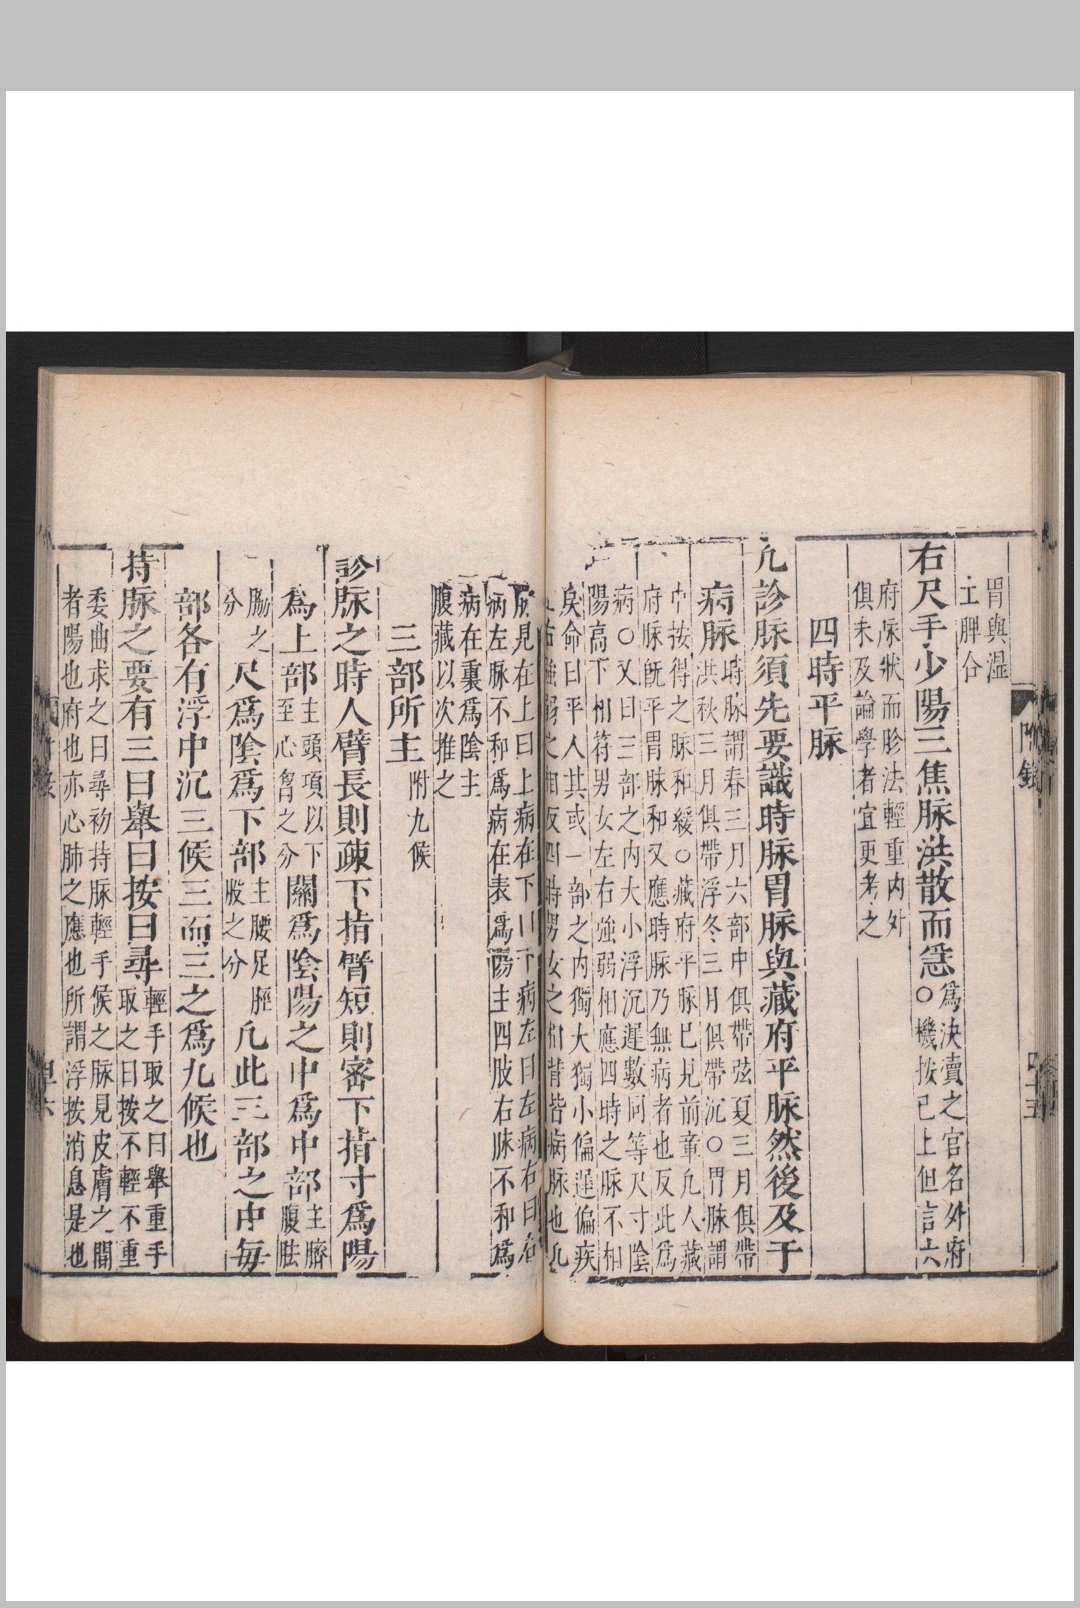 胃與濕
土脾合
右尺手少陽三焦脉洪散而急
爲決瀆之官名外府
○機按已上但言六
府脉狀而胗法輕重内外
俱未及論學者宜更考之
四時平脉
凡診脉須先要識時脉胃脉與藏府平脉然後及于
病脉
時脉謂春三月六部中俱帶弦夏三月俱帶
洪秋三月俱帶浮冬三月俱帶沉○胃脉謂
中按得之脉和緩○藏府平脉已見前章凡人藏
府脉既平胃脉和又應時脉乃無病者也反此爲
病○又曰三部之内大小浮沉遲數同等尺寸陰
陽高下相符男女左右強弱相應四時之脉不相
戾命曰平人其或一部之内獨大獨小偏遲偏疾
左右強弱之相反四時男女之相背皆病脉也凡
病見在上曰上病在下曰下病左曰左病右曰右
病左脉不和爲病在表爲陽主四肢右脉不和爲
病在裏爲陰主
腹藏以次推之
三部所主
附九候
診脉之時人臂長則疎下指臂短則審下指寸爲陽
爲上部
主頭項以下
至心胷之分
關爲陰陽之中爲中部
主臍
腹胠
脇之
分
尺爲陰爲下部
主腰足脛
股之分
凡此三部之中毎
部各有浮中沉三候三而三之爲九候也
持脉之要有三曰舉曰按曰尋
輕手取之曰舉重手
取之曰按不輕不重
委曲求之曰尋初持脉輕手候之脉見皮膚之間
者陽也府也亦心肺之應也所謂浮按消息是也
附錄
四十五